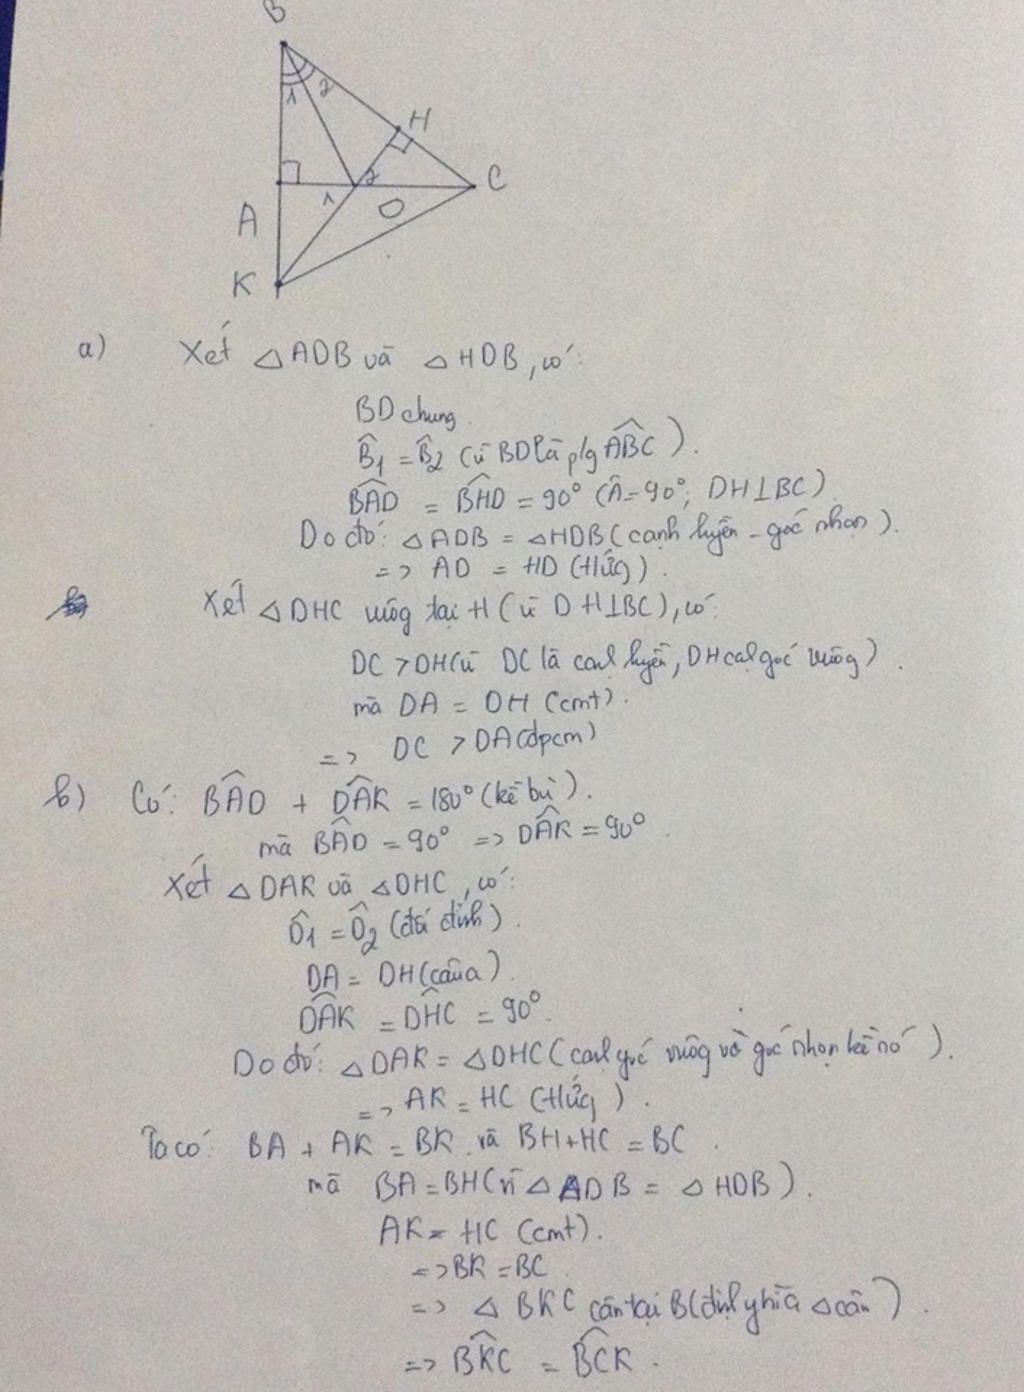 B
1 2
H
C
2
1
D
A
K
a) Xét △ADB và △HDB, có:
BD chung.
B̂1 = B̂2 (vì BD là p/g ABC).
BAD = BHD = 90° (Â = 90°; DH⊥BC)
Do đó: △ADB = △HDB (cạnh huyền - góc nhọn).
=> AD = HD (tứg).
Xét △DHC vuôg tại H (vì DH⊥BC), có:
DC > DH (vì DC là cạnh huyền, DH cạh góc vuôg).
mà DA = DH (cmt).
=> DC > DA (đpcm)
b) Có: BAD + DAK = 180° (kề bù).
mà BAD = 90° => DAK = 90°.
Xét △DAK và △DHC, có:
D̂1 = D̂2 (đối đỉnh).
DA = DH (câu a).
DAK = DHC = 90°.
Do đó: △DAK = △DHC (cạnh góc vuôg và góc nhọn kề nó).
=> AK = HC (tứg).
Ta có: BA + AK = BK và BH + HC = BC.
mà BA = BH (vì △ADB = △HDB).
AK = HC (cmt).
=> BK = BC
=> △BKC cân tại B (định nghĩa △ cân).
=> BKC = BCK.